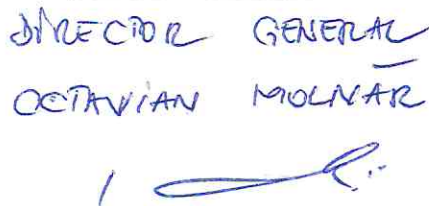 DIRECTOR GENERAL
OCTAVIAN MOLNAR